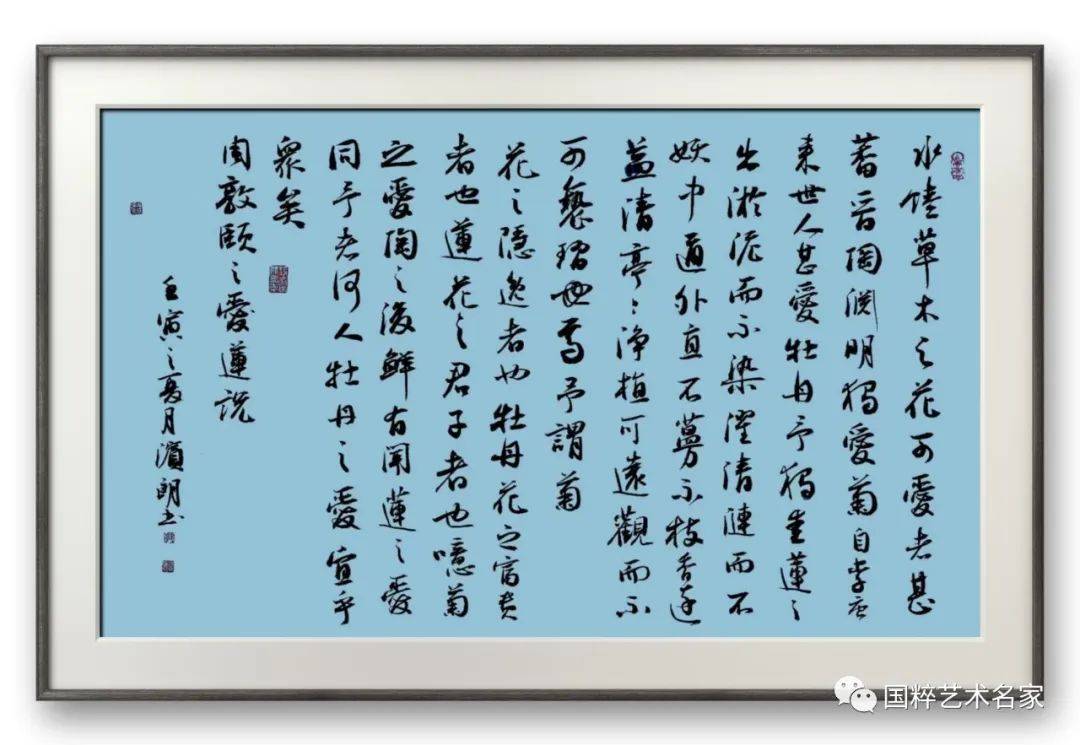 水陸草木之花可愛者甚
蕃晋陶渊明獨愛菊自李唐
来世人甚愛牡丹予獨愛蓮之
出淤泥而不染濯清漣而不
妖中通外直不蔓不枝香遠
益清亭〻净植可遠觀而不
可褻焉予謂菊
花之隱逸者也牡丹花之富貴
者也蓮花之君子者也噫菊
之愛陶之後鮮有聞蓮之愛
同予者何人牡丹之愛宜乎
衆矣
周敦頤之愛蓮説
壬寅之夏月濱朗书
国粹艺术名家